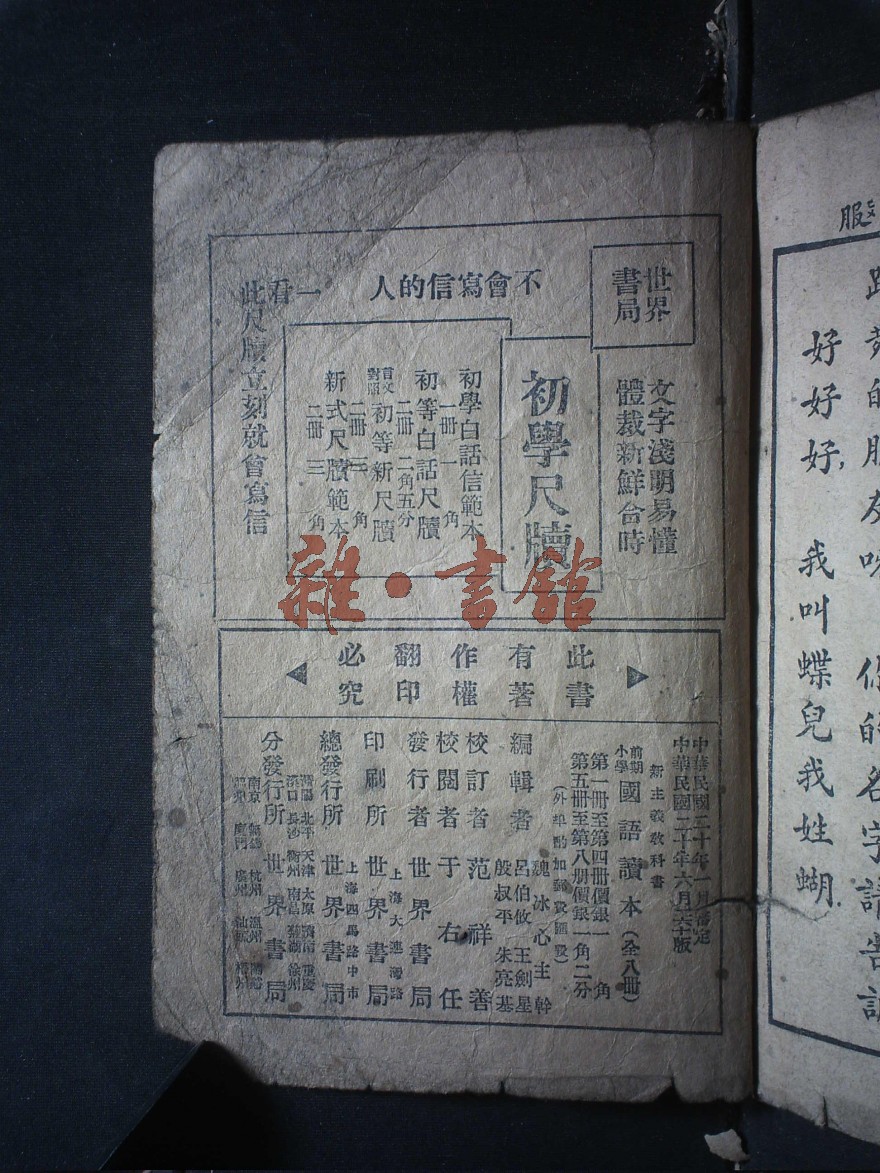 世界
書局
文字淺明易懂
體裁新鮮合時
初學尺牘
不會寫信的人
一看
此尺牘立刻就會寫信
初學白話信範本
一冊 一角
初等白話尺牘
二冊 二角五分
言文對照 初等新尺牘
二冊 三角
新式尺牘範本
二冊 三角
雜·書館
此書
有著
作權
翻印
必究
中華民國二十年一月審定
中華民國二十年六月
版
新主義教科書
前期小學 國語讀本(全八冊)
第一冊至第四冊價銀一角
第五冊至第八冊價銀一角二分
(外埠酌加郵費匯費)
編輯者
魏冰心主幹
呂伯攸 王劍星
殷叔平 朱亮基
校訂者 范祥善
校閱者 于右任
發行者 世界書局
印刷所 世界書局
上海大連灣路
總發行所 世界書局
上海四馬路中市
分發行所 世界書局
北平 天津 太原 濟南 重慶
漢口 長沙 衡州 南昌 蕪湖 徐州
南京 無錫 杭州 溫州
廈門 廣州
的朋友呀 你的名字請告訴
好好好,我叫蝶兒我姓蝴